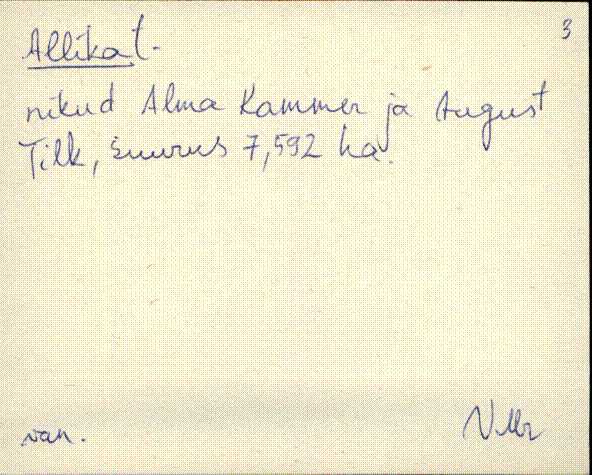 3
Allikat.
nikud Alma Kammer ja August
Tilk, suurus 7,592 ha.
van. VMr